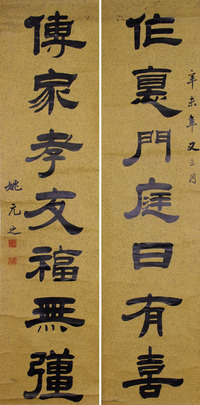 作裏門庭日有喜
辛未年又三月
傳家孝友福無彊
姚元之